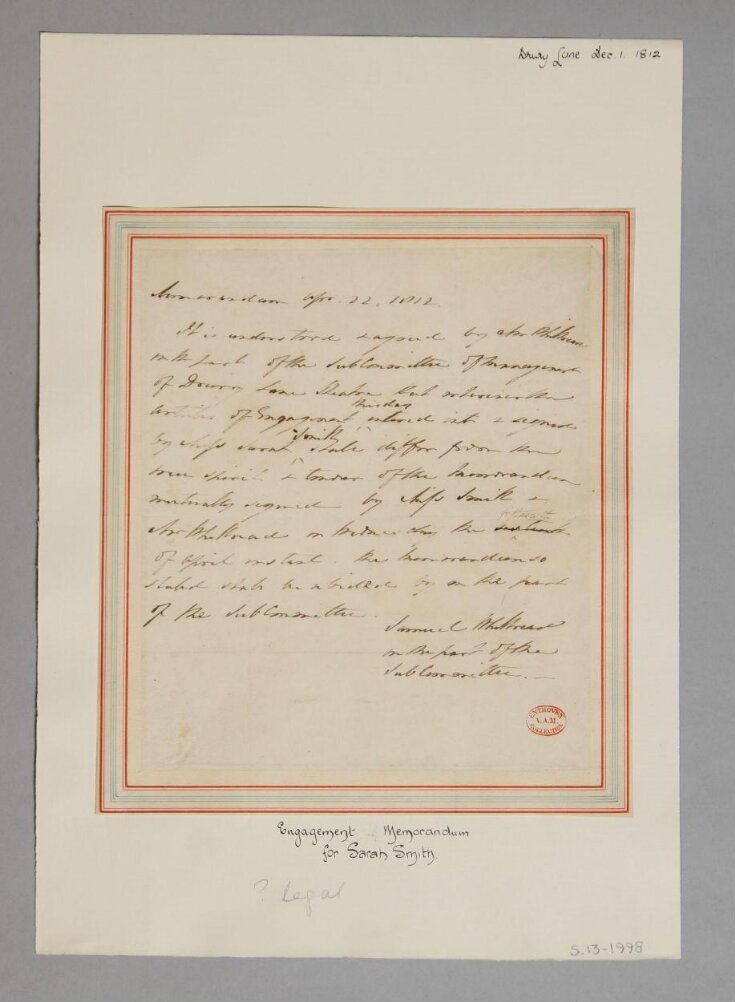 Drury Lane Dec. 1. 1812
Memorandum Apr. 22. 1812.
It is understood & agreed by Mr Whitbread
on the part of the SubCommittee of Management
of Drury Lane Theatre that wherever the
this day
articles of Engagement entered into & signed
Smith
by Miss Sarah shall differ from the
true spirit & tenour of the Memorandum
mutually signed by Miss Smith &
Mr Whitbread on Wednesday the
of April instant. the Memorandum so
stated shall be abided by on the part
of the SubCommittee.
Samuel Whitbread
on the part of the
SubCommittee. —
ENTHOVEN
V.A.M.
COLLECTION
Engagement Memorandum
for Sarah Smith.
? Legal
S.13-1998